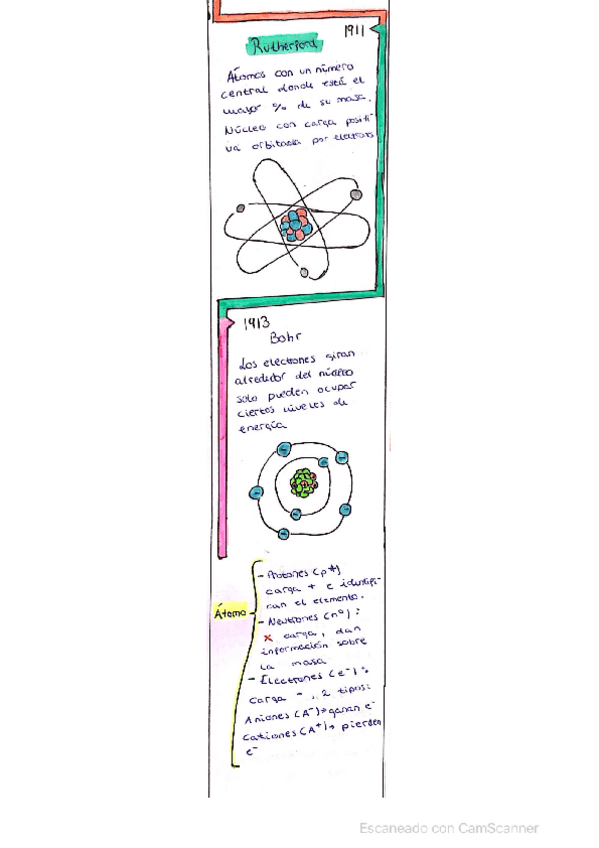 1911
Rutherford
Átomos con un número
central donde está el
mayor % de su masa.
Núcleo con carga positi
va orbitada por electrones
1913
Bohr
Los electrones giran
alrededor del núcleo
solo pueden ocupar
ciertos niveles de
energía
Átomo
- Protones (p+)
carga + e identifi-
can el elemento.
- Neutrones (n°):
x carga, dan
información sobre
la masa
- Electrones (e-):
carga -, 2 tipos:
Aniones (A-)→ganan e-
Cationes (A+)→ pierden
e-
Escaneado con CamScanner